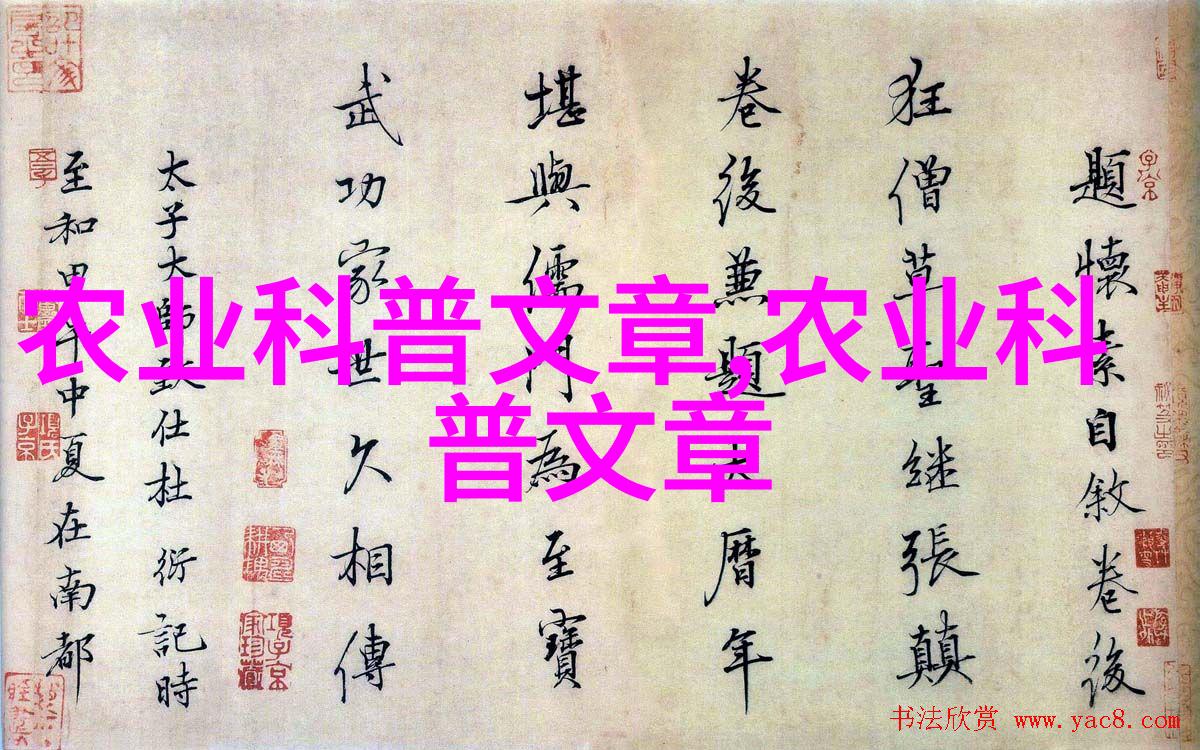 題懷素自敘卷後
狂僧草聖継張顛
卷後兼題大曆年
堪與儒門為至寶
武功家世久相傳
太子大師致仕杜衍記時
至和甲午中夏在南都
农业科普文章,农业科
普文章
項子京家珍藏
书法欣赏 www.yac8.com